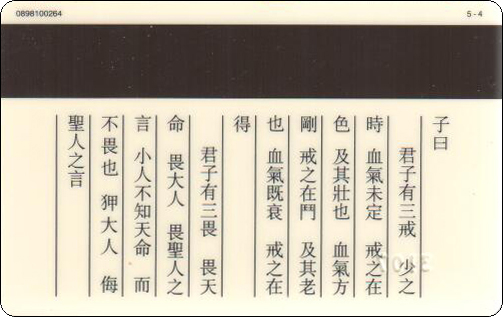 0898100264
5 - 4
子曰
君子有三戒　少之
時　血氣未定　戒之在
色　及其壯也　血氣方
剛　戒之在鬥　及其老
也　血氣既衰　戒之在
得
君子有三畏　畏天
命　畏大人　畏聖人之
言　小人不知天命　而
不畏也　狎大人　侮
聖人之言